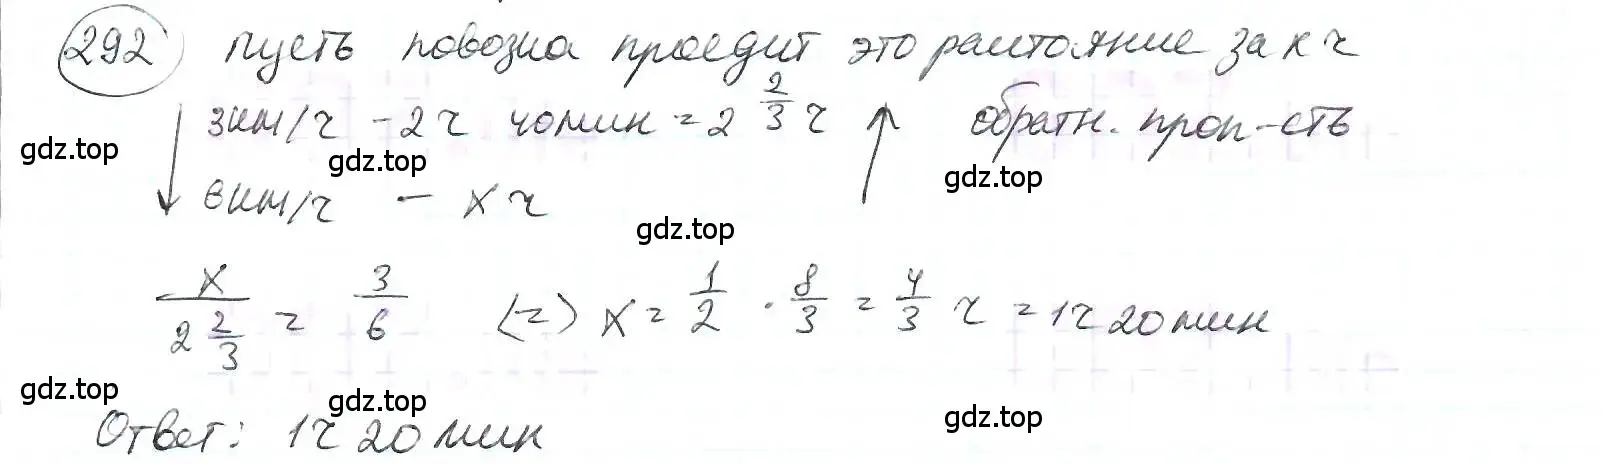 292 пусть повозка проедит это расстояние за x ч
3км/ч - 2ч 40мин = 2 2/3 ч обратн. проп-сть
gdz.top gdz.top gdz.top
6км/ч - x ч
gdz.top
x / 2 2/3 = 3/6 (=) x = 1/2 · 8/3 = 4/3 ч = 1ч 20мин
gdz.top gdz.top gdz.top
Ответ: 1ч 20мин